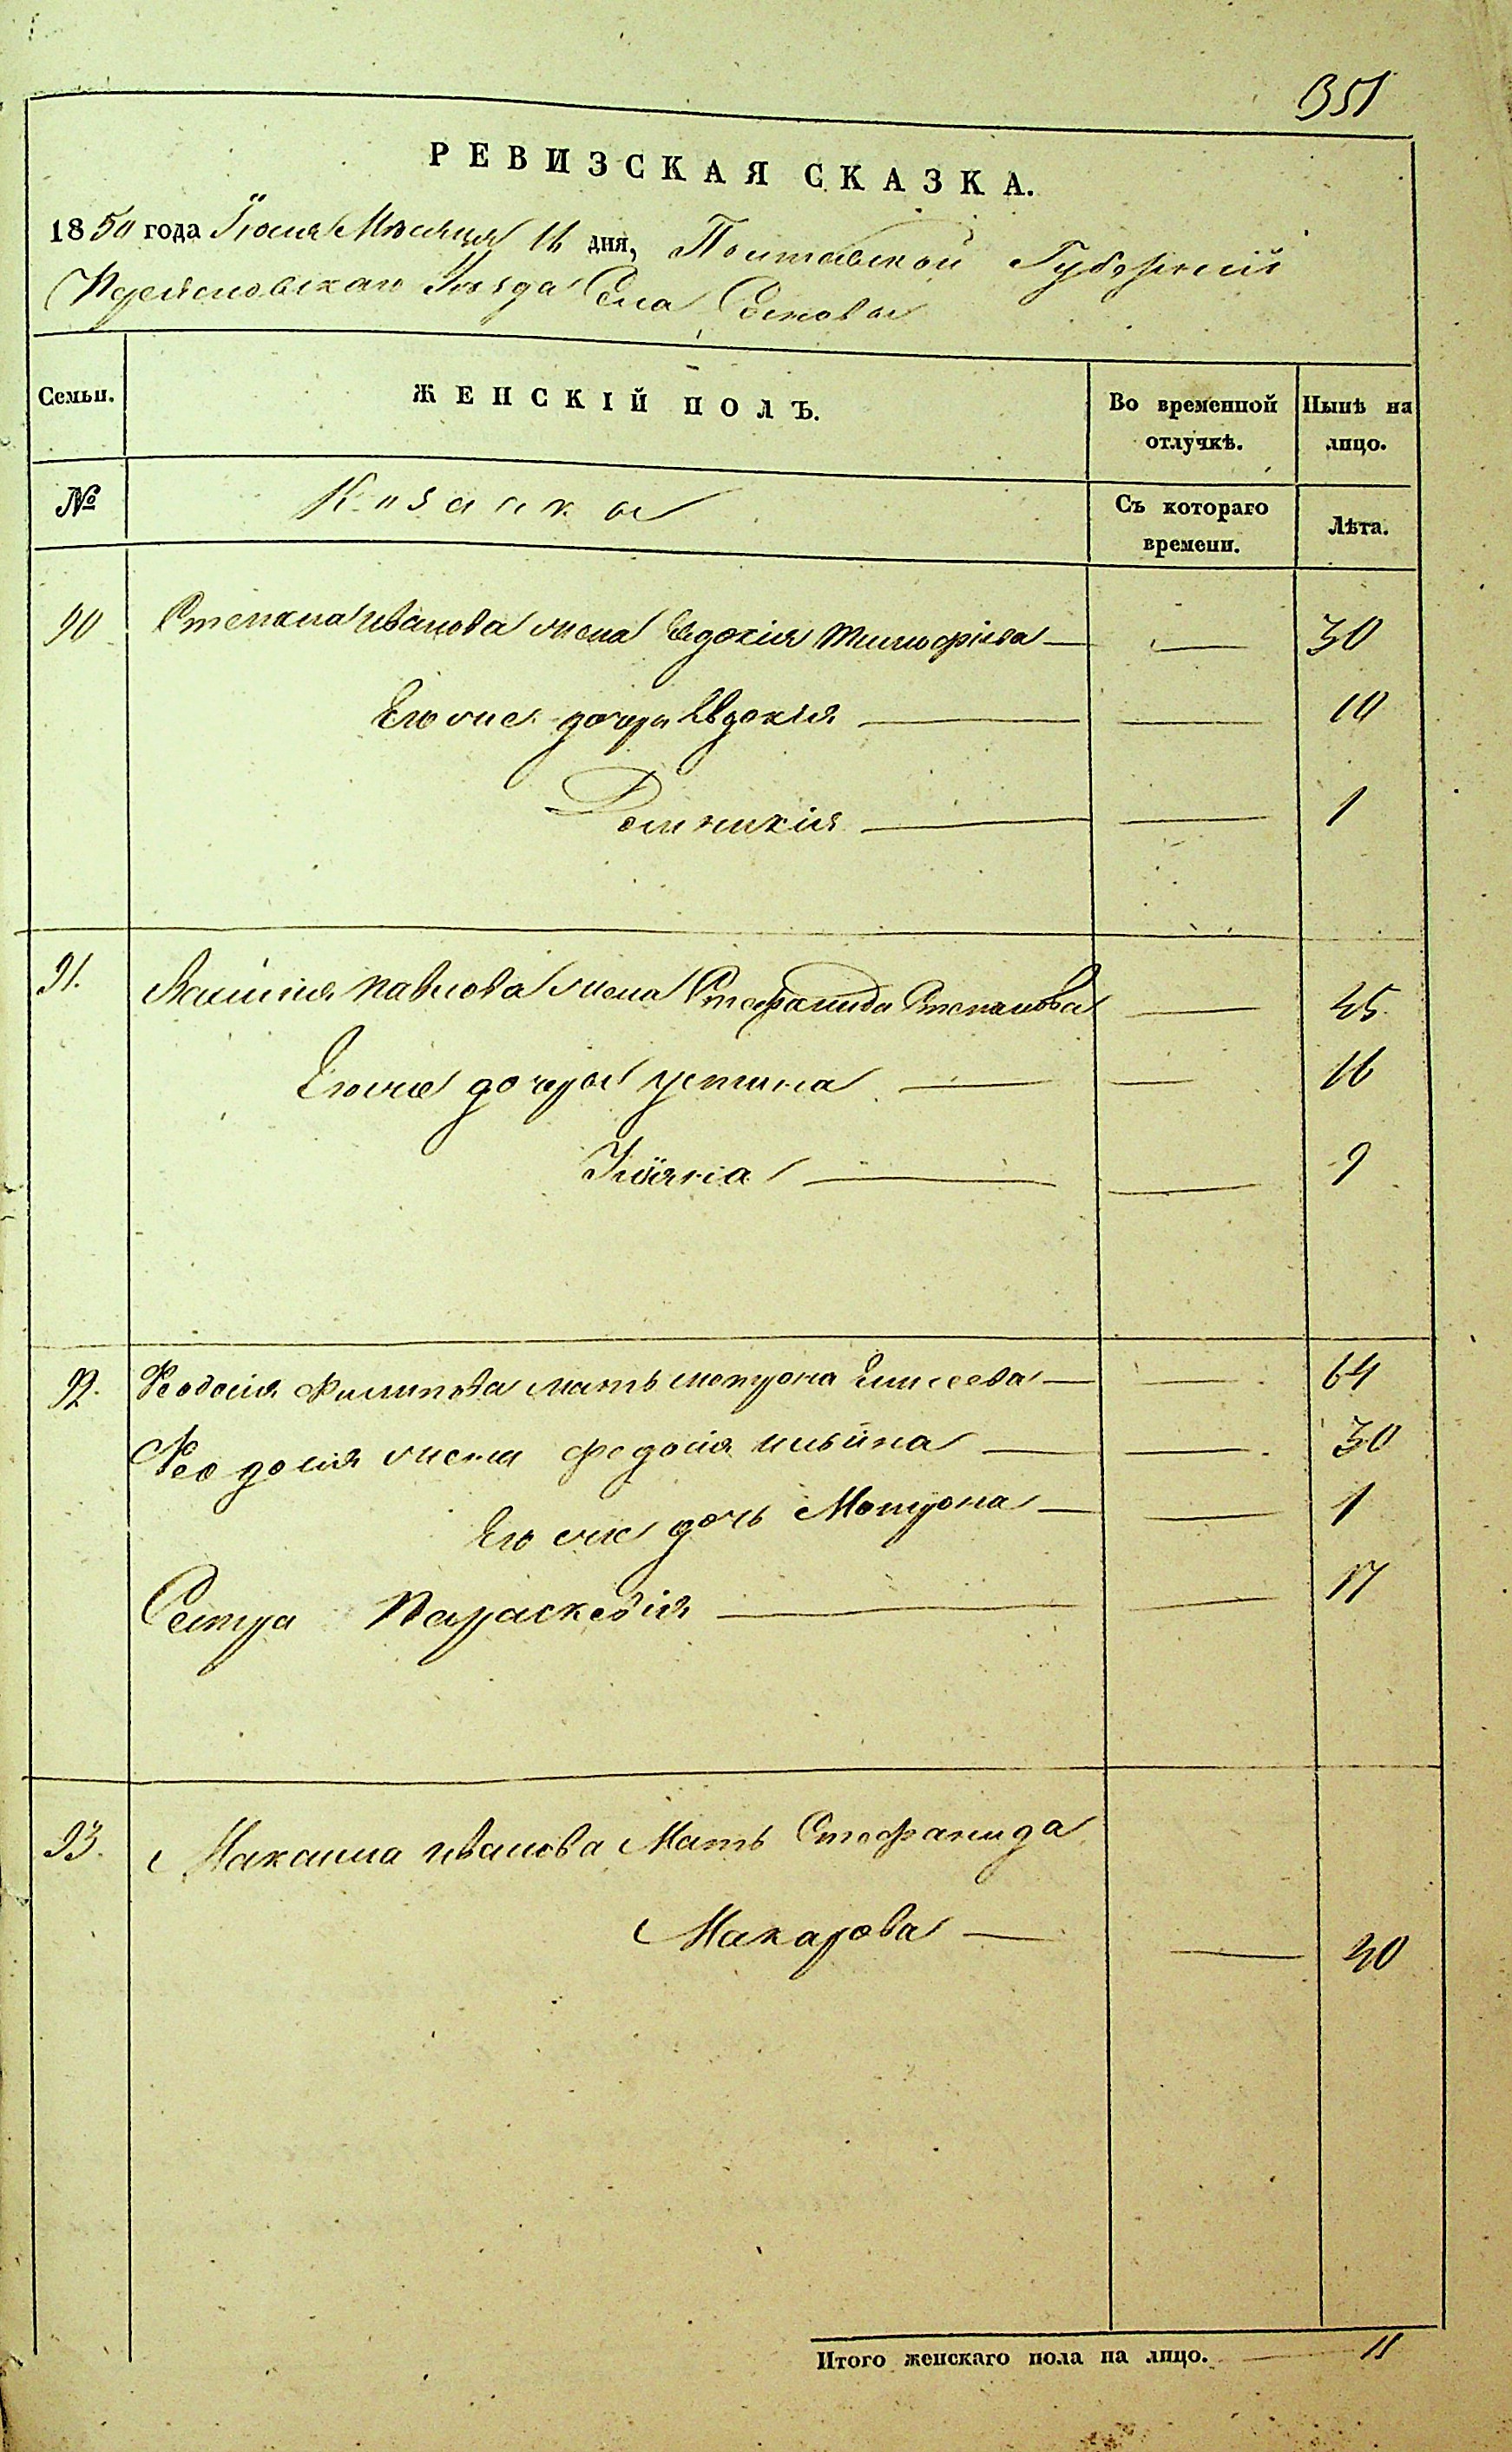 351
РЕВИЗСКАЯ СКАЗКА.
1850 года Іюля Мѣсяца 14 дня, Полтавской Губерніи
Уѣзда Села Сосновы
Семьи. ЖЕНСКІЙ ПОЛЪ. Во временной отлучкѣ. Нынѣ на лицо.
№ Козачки Съ котораго времени. Лѣта.
90 Степана Иванова жена Евдокія Тимофѣева — — 30
Его же дочери Евдокія — — 10
Домникія — — 1
91. Павлова жена Стефанида Степанова — 45
Его же дочери Устина — — 16
— — 9
92. Феодосія Филипова мать Мотрона Елисеева — — 64
Феодосія жена Федосія Ильина — — 30
Его же дочь Мотрона — — 1
Сестра Параскевія — — 17
93. Максима Иванова Мать Стефанида
Макарова — — 40
Итого женскаго пола на лицо. — 11